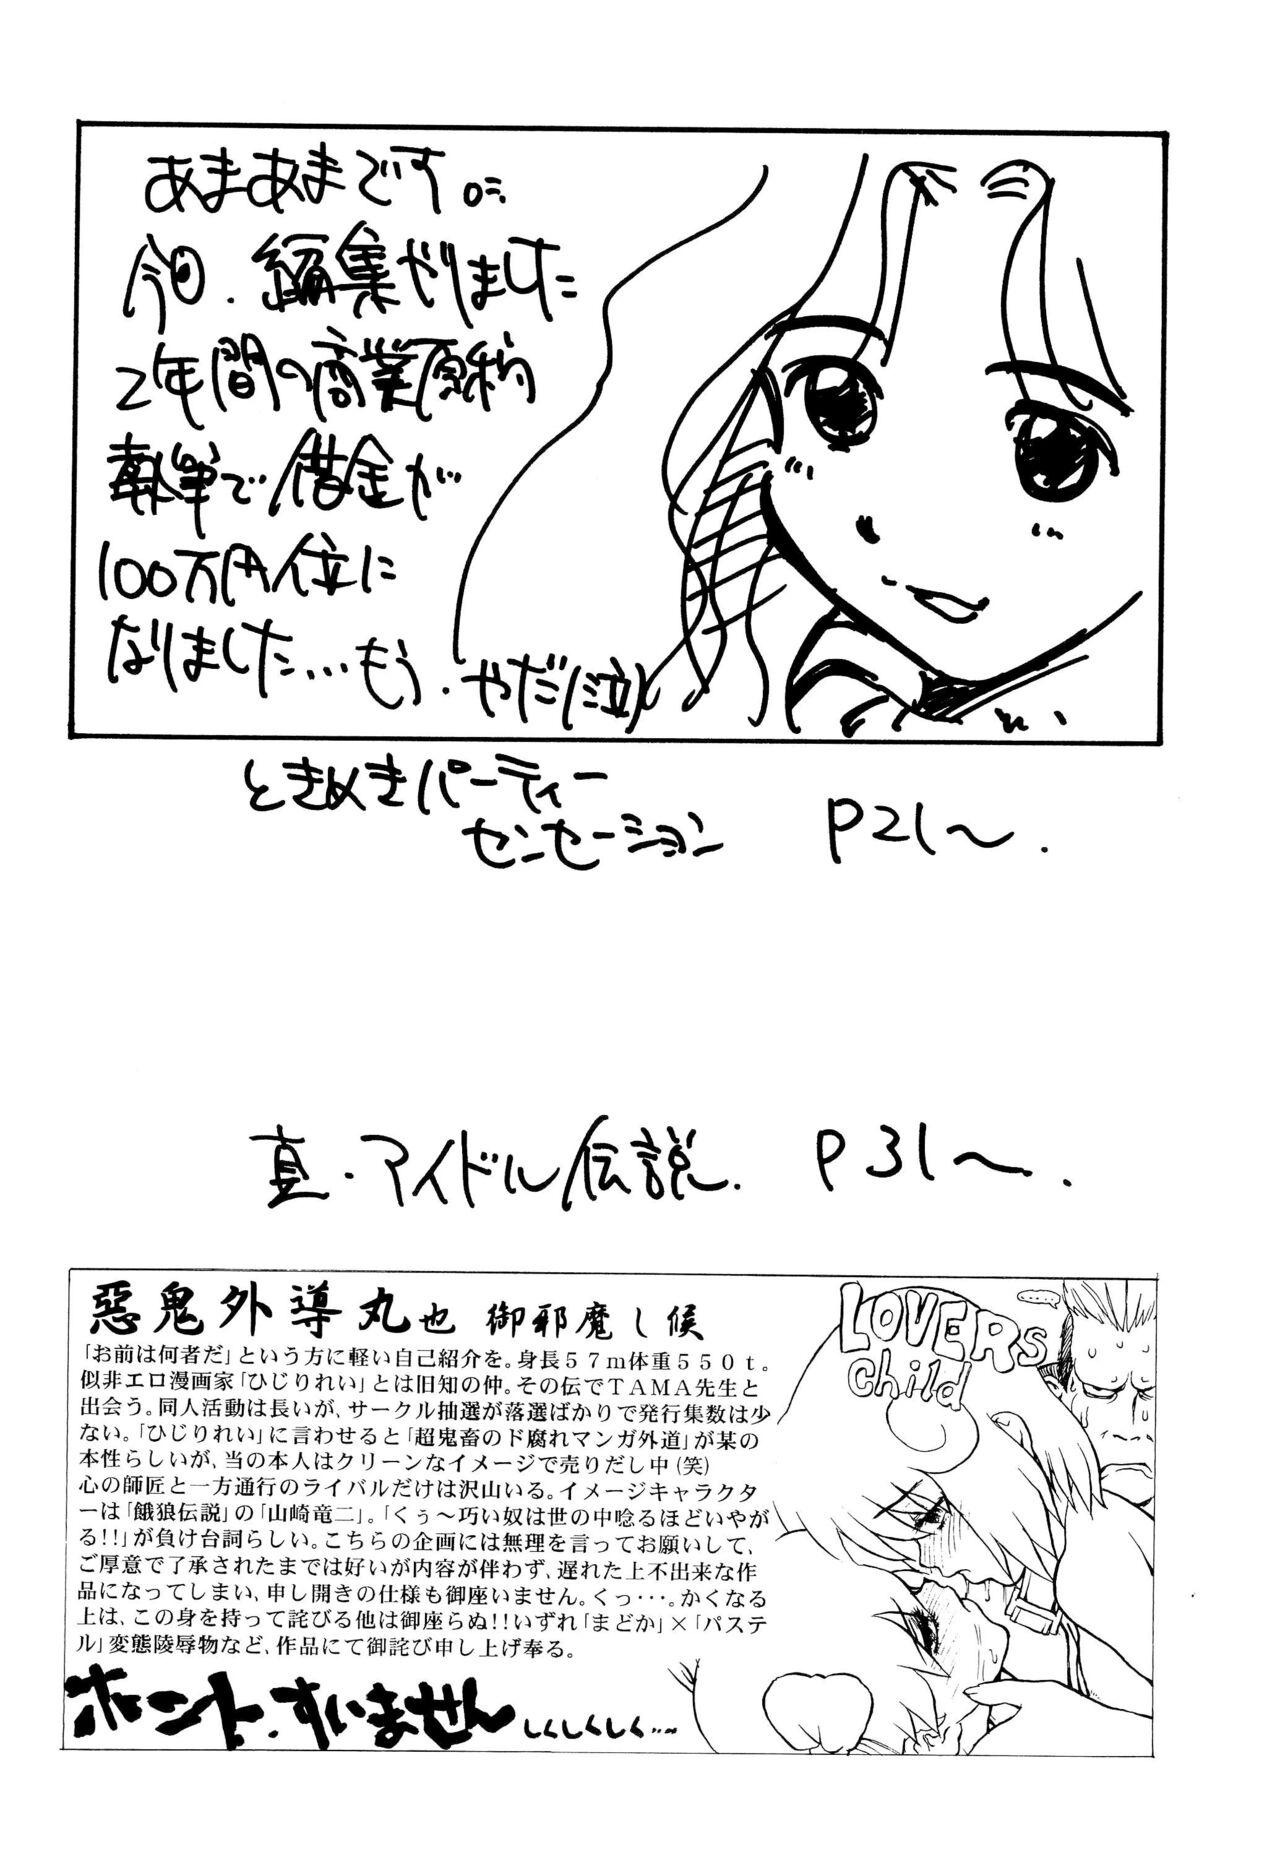 あまあまです。
今回、編集やりました
2年間の商業原稿
執筆で借金が
100万円位に
なりました…もう、やだ(泣)
ときめきパーティー
センセーション P21〜.
真・アイドル伝説. P31〜.
惡鬼外導丸也 御邪魔し候
「お前は何者だ」という方に軽い自己紹介を。身長57m体重550t。
似非エロ漫画家「ひじりれい」とは旧知の仲。その伝でTAMA先生と
出会う。同人活動は長いが、サークル抽選が落選ばかりで発行集数は少
ない。「ひじりれい」に言わせると「超鬼畜のド腐れマンガ外道」が某の
本性らしいが、当の本人はクリーンなイメージで売りだし中(笑)
心の師匠と一方通行のライバルだけは沢山いる。イメージキャラクタ
ーは「餓狼伝説」の「山崎竜二」。「くぅ〜巧い奴は世の中唸るほどいやが
る!!」が負け台詞らしい。こちらの企画には無理を言ってお願いして、
ご厚意で了承されたまでは好いが内容が伴わず、遅れた上不出来な作
品になってしまい、申し開きの仕様も御座いません。くっ・・・。かくなる
上は、この身を持って詫びる他は御座らぬ!!いずれ「まどか」×「パステ
ル」変態陵辱物など、作品にて御詫び申し上げ奉る。
ホント、すいません しくしくしく…
LOVERS
child